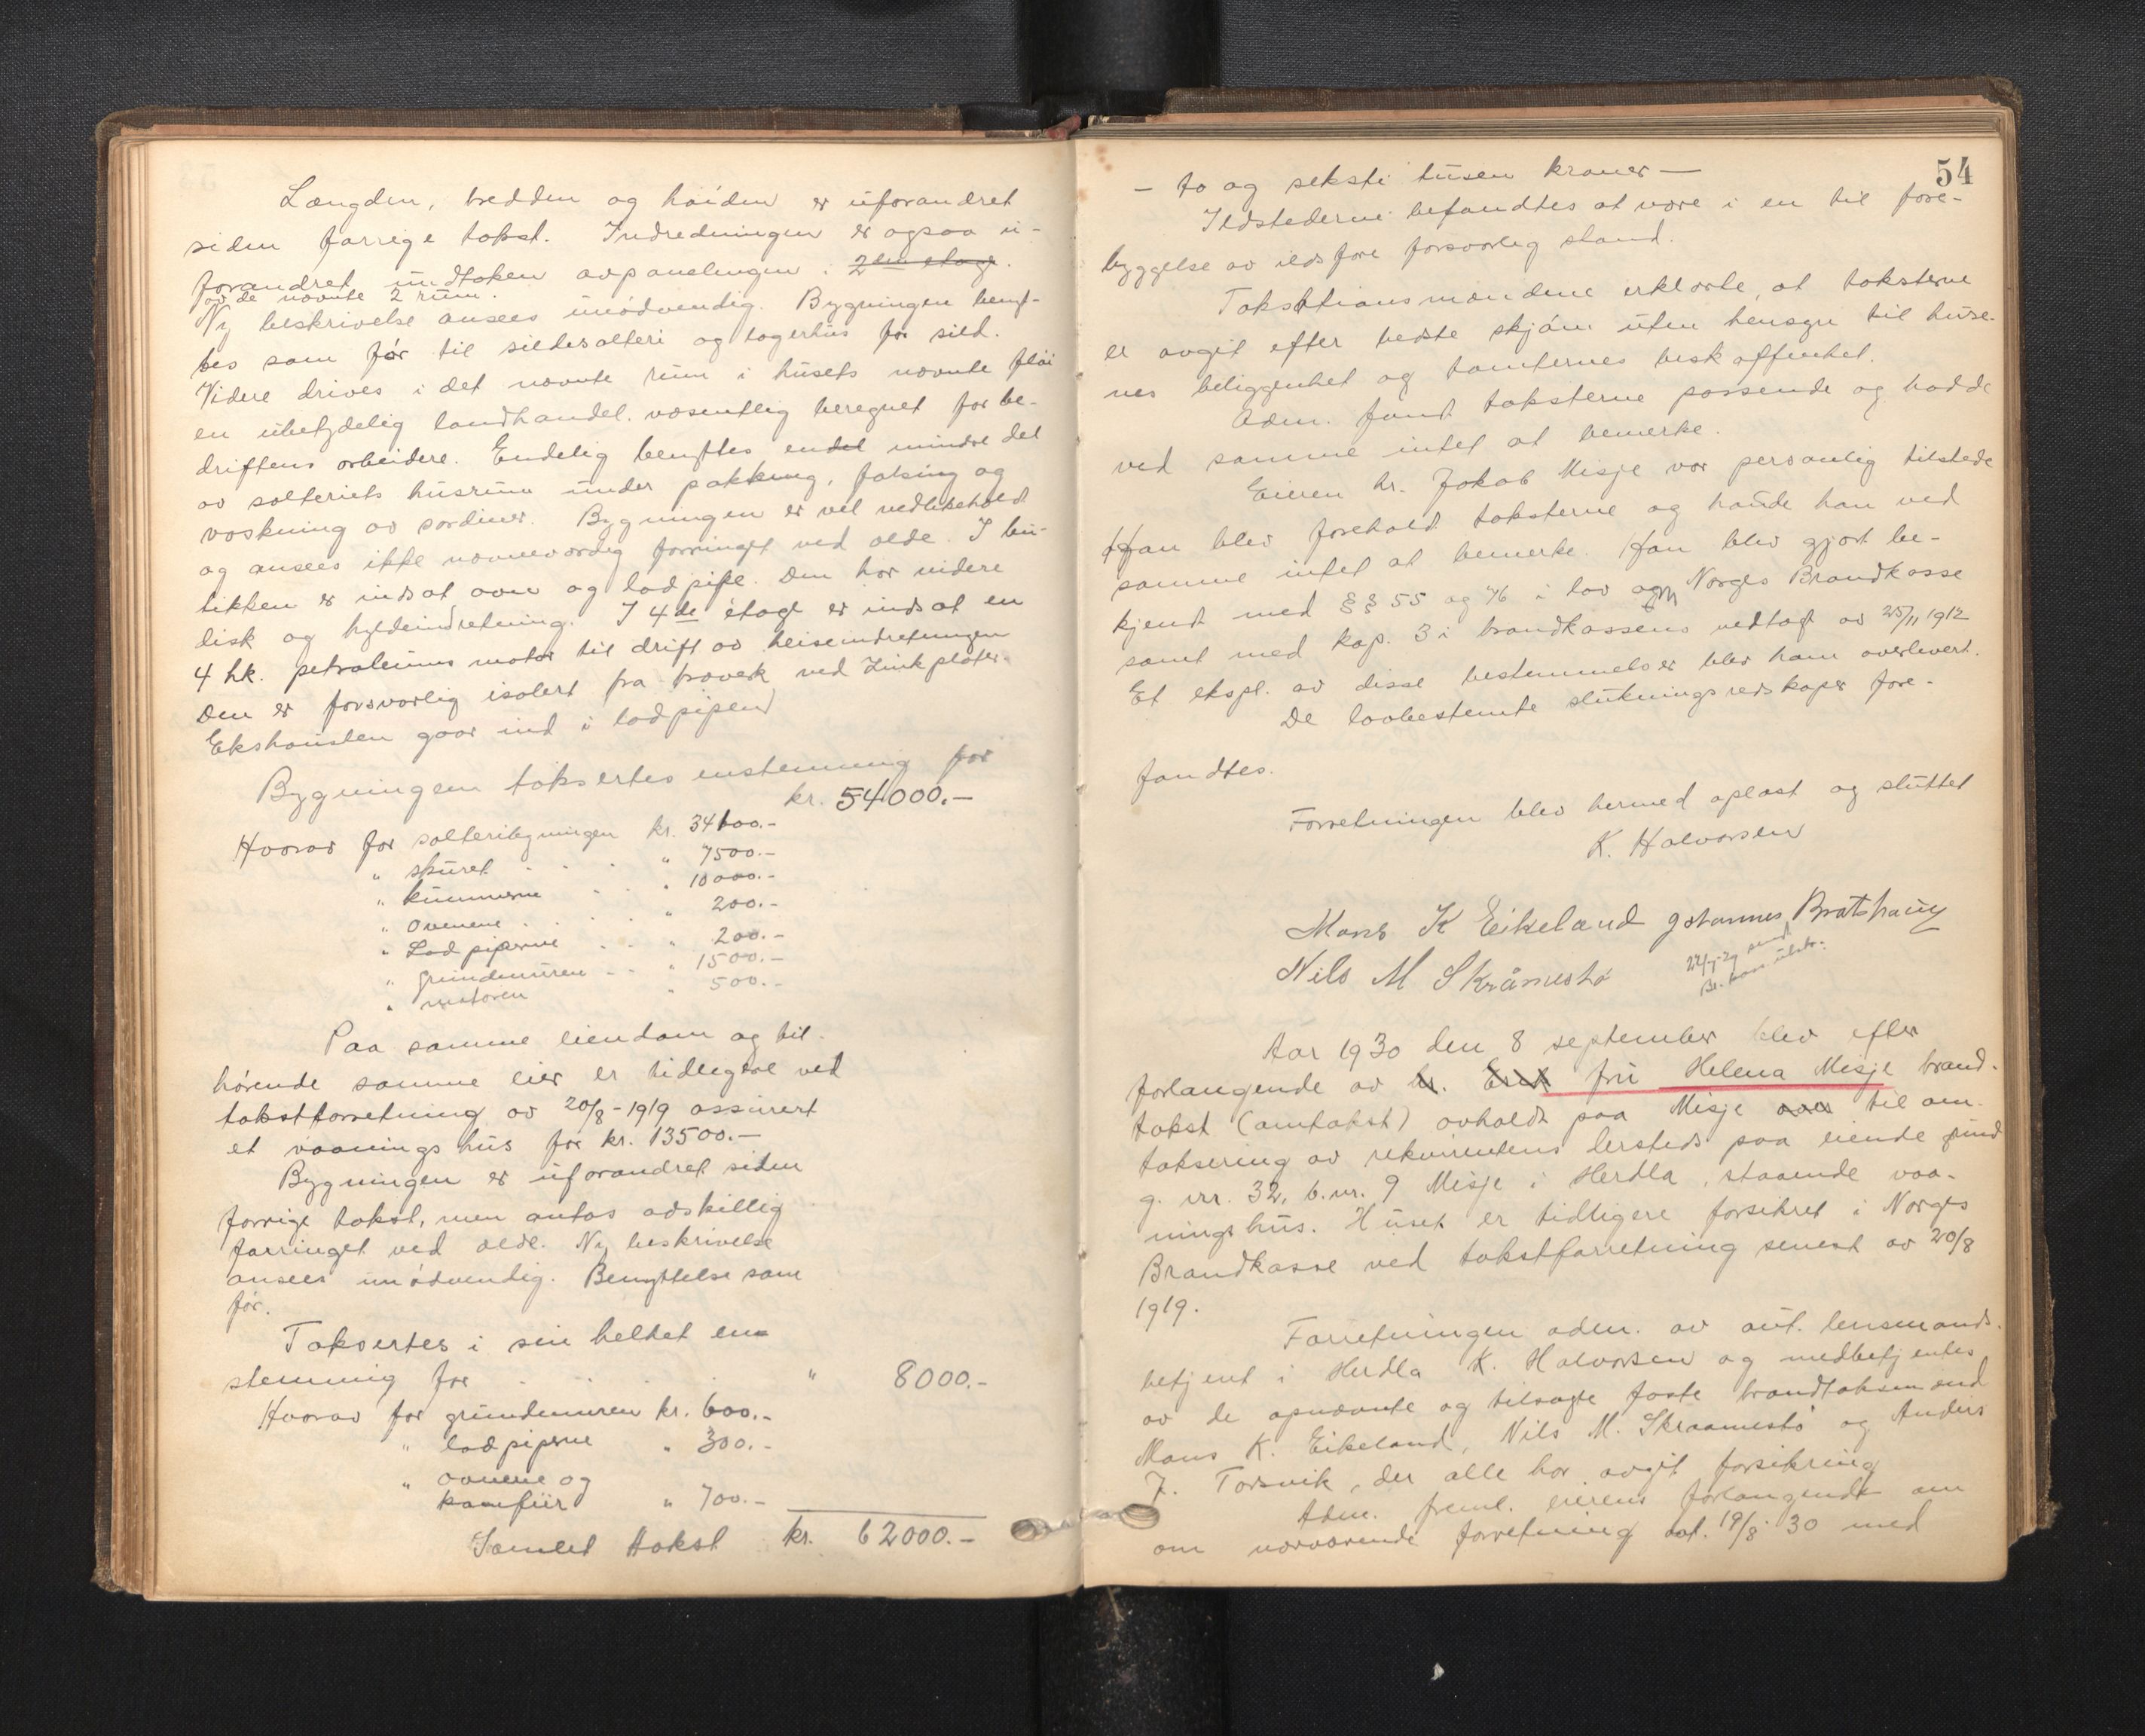 Længden, bredden og høiden er uforandret
siden forrige takst. Indredningen er ogsaa u-
forandret undtaken avpanelingen i 2den etage.
av de nævnte 2 rum.
Ny beskrivelse ansees unødvendig. Bygningen benyt-
tes som før til sildesalteri og lagerhus for sild.
Videre drives i det nævnte rum i husets nævnte fløi
en ubetydelig landhandel væsentlig beregnet for be-
driftens arbeidere. Endelig benyttes endel mindre del
av salteriets husrum under pakking, falsing og
vaskning av sardiner. Bygningen er vel vedlikeholdt
og ansees ikke nævneværdig forringet ved ælde. I bu-
tikken er indsat ovn og lodpipe. Den har videre
disk og hyldeindretning. I 4de etage er indsat en
4 hk. petroleums motor til drift av heiseindretningen
Den er forsvarlig isolert fra træverk ved Zinkplater.
Ekshausten gaar ind i lodpipen
Bygningen taksertes enstemmig for
kr. 54000.-
Hvorav for salteribygningen kr. 34100.-
" skuret . . . " 7500.-
" kummerne . . " 10000.-
" Ovnene . . . " 200.-
" Lodpiperne . . " 200.-
" grundmuren . . " 1500.-
" motoren " 500.-
Paa samme eiendom og til-
hørende samme eier er tidligere ved
takstforretning av 20/8-1919 assurert
et vaaningshus for kr. 13500.-
Bygningen er uforandret siden
forrige takst, men antas adskillig
forringet ved ælde. Ny beskrivelse
ansees unødvendig. Benyttelse som
før.
Taksertes i sin helhet en-
stemmig for . . . " 8000.-
Hvorav for grundmuren kr. 600.-
" lodpiperne " 300.-
" ovnene og
komfür " 700.-
Samlet takst kr. 62000.-
54
- to og seksti tusen kroner -
Ildstederne befandtes at være i en til fore-
byggelse av ildsfare forsvarlig stand.
Takstiansmændene erklærte, at taksterne
er avgit efter bedste skjøn uten hensyn til huse-
nes beliggenhet og tomternes beskaffenhet.
Adm. fandt taksterne passende og hadde
ved samme intet at bemerke.
Eieren hr. Jakob Misje var personlig tilstede
Han blev foreholdt taksterne og havde han ved
samme intet at bemerke. Han blev gjort be-
kjent med §§ 55 og 76 i lov om Norges Brandkasse
samt med kap. 3 i brandkassens vedtægt av 25/11 1912
Et ekspl. av disse bestemmelser blev ham overlevert.
De lovbestemte slukningsredskaper fore-
fandtes.
Forretningen blev hermed oplæst og sluttet
K. Halvorsen
Mons K Eikeland Johannes Bratshaug
Nils M Skråmestø
Aar 1930 den 8 september blev efter
forlangende av hr. fru Helena Misje brand-
takst (omtakst) avholdt paa Misje til om-
taksering av rekvirentens dersteds paa eiende grund
g. nr. 32, b.nr. 9 Misje i Herdla, staaende vaa-
ningshus. Huset er tidligere forsikret i Norges
Brandkasse ved takstforretning senest av 20/8
1919.
Forretningen adm. av aut. lensmands-
betjent i Herdla K. Halvorsen og medbetjentes
av de opnævnte og tilsagte faste brandtaksmænd
Mons K. Eikeland, Nils M. Skraamestø og Anders
J. Torsvik, der alle har avgit forsikring
Adm. freml. eierens forlangende om
om nærværende forretning dat. 19/8 30 med